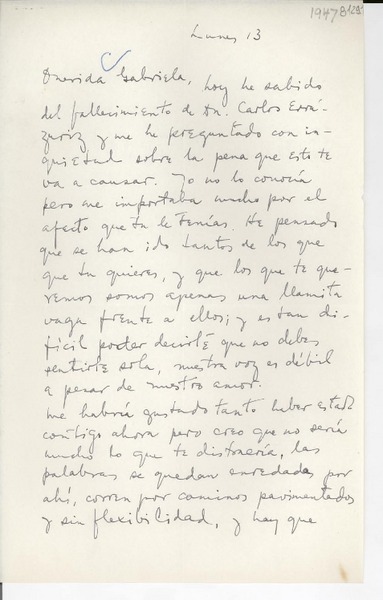 19478129
Lunes 13
Querida Gabriela, hoy he sabido
del fallecimiento de Dn. Carlos Errá-
zuriz y me he preguntado con in-
quietud sobre la pena que esto te
va a causar. Yo no lo conocía
pero me importaba mucho por el
afecto que tu le tenías. He pensado
que se han ido tantos de los que
que tu quieres, y que los que te que-
remos somos apenas una llamita
vaga frente a ellos; y es tan di-
fícil poder decirte que no debes
sentirte sola, nuestra voz es débil
a pesar de nuestro amor.
Me habría gustado tanto haber estado
contigo ahora pero creo que no sería
mucho lo que te distraería, las
palabras se quedan enredadas por
ahí, corren por caminos pavimentados
y sin flexibilidad, y hay que